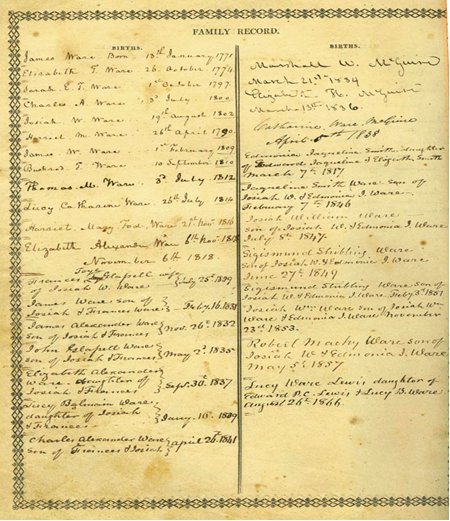 FAMILY RECORD.
BIRTHS.
James Ware Born 13th January 1771
Elizabeth T. Ware 26 October 1774
Sarah E. T. Ware 1st October 1797
Charles A. Ware 3d July 1800
Josiah W. Ware 19th August 1802
Harriet M. Ware 26th April 1790
James W. Ware 1st February 1809
Bushrod T. Ware 10 September 1810
Thomas M. Ware 3d July 1812
Lucy Catharine Ware 26th July 1814
Harriet Mary Ware 21st Nov 1816
Elizabeth Alexander Ware
November 6th 1818.
Frances Glassell wife
of Josiah W. Ware } July 25th 1809
James Ware son of
Josiah & Frances Ware } Feb.y 16. 1831
James Alexander Ware
Son of Josiah & Frances } Nov. 26th 1832
John Glassell Ware
son of Josiah & Frances } May 2d 1835
Elizabeth Alexander
Ware. daughter of
Josiah & Frances } Sept. 30. 1837
Lucy Balmain Ware.
daughter of Josiah
& Frances } Jany. 10th 1839
Charles Alexander Ware
son of Frances & Josiah } April 26th 1841
BIRTHS.
Marshall W. McGuire
March 21st 1834
Elizabeth H. McGuire
March 13th 1836.
Catharine Ware McGuire
April 5th 1838
Edmonia Jaqueline Smith, daughter
of Edward Jaqueline & Elizabeth Smith
March 7th 1817
Jaqueline Smith Ware son of
Josiah W. & Edmonia J. Ware.
February 7th 1846
Josiah William Ware
son of Josiah W. & Edmonia J. Ware
July 8th 1847
Sigismund Stribling Ware
Son of Josiah W. & Edmonia J. Ware
June 27th 1849
Sigismund Stribling Ware son of
Josiah W. & Edmonia J. Ware Feb.y 3d 1851
Josiah Wm Ware Son of Josiah Wm
Ware & Edmonia J. Ware November
23d 1853.
Robert Macky Ware son of
Josiah W. & Edmonia J. Ware
May 5th 1857
Lucy Ware Lewis daughter of
Edward P.C. Lewis & Lucy B. Ware
August 26th 1866.